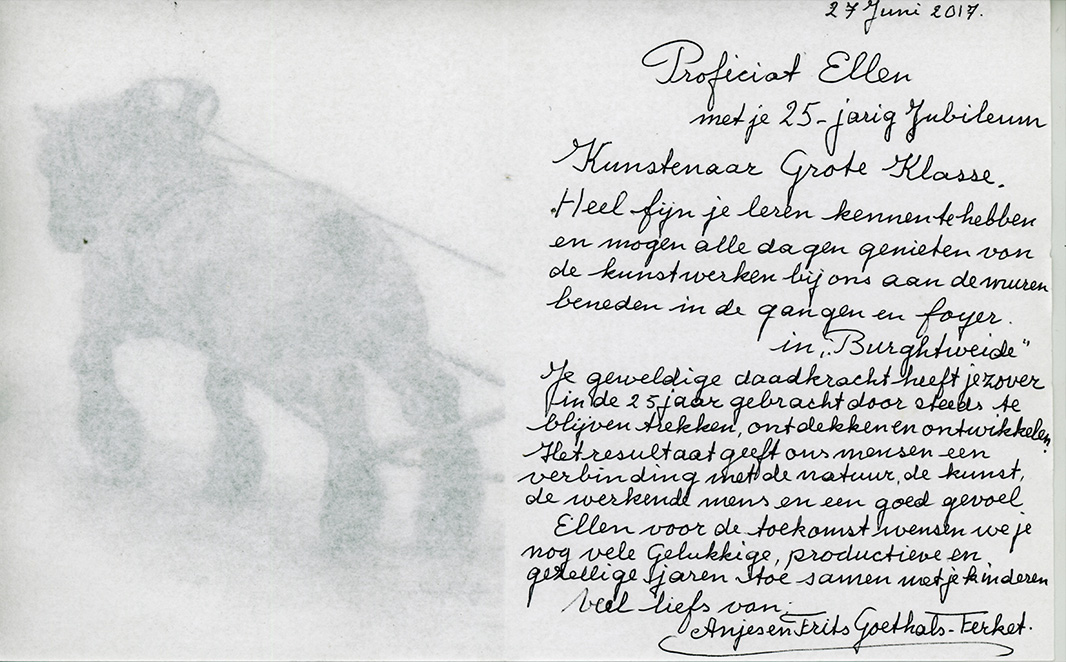 27 Juni 2017.
Proficiat Ellen
met je 25-jarig Jubileum
Kunstenaar Grote Klasse.
Heel fijn je leren kennen te hebben
en mogen alle dagen genieten van
de kunstwerken bij ons aan de muren
beneden in de gangen en foyer.
in „Burghtweide"
Je geweldige daadkracht heeft je zover
in de 25 jaar gebracht door steeds te
blijven trekken, ontdekken en ontwikkelen.
Het resultaat geeft ons mensen een
verbinding met de natuur, de kunst,
de werkende mens en een goed gevoel
Ellen voor de toekomst wensen we je
nog vele Gelukkige, productieve en
gezellige jaren toe samen met je kinderen
Veel liefs van:
Anjes en Frits Goethals-Ferket.